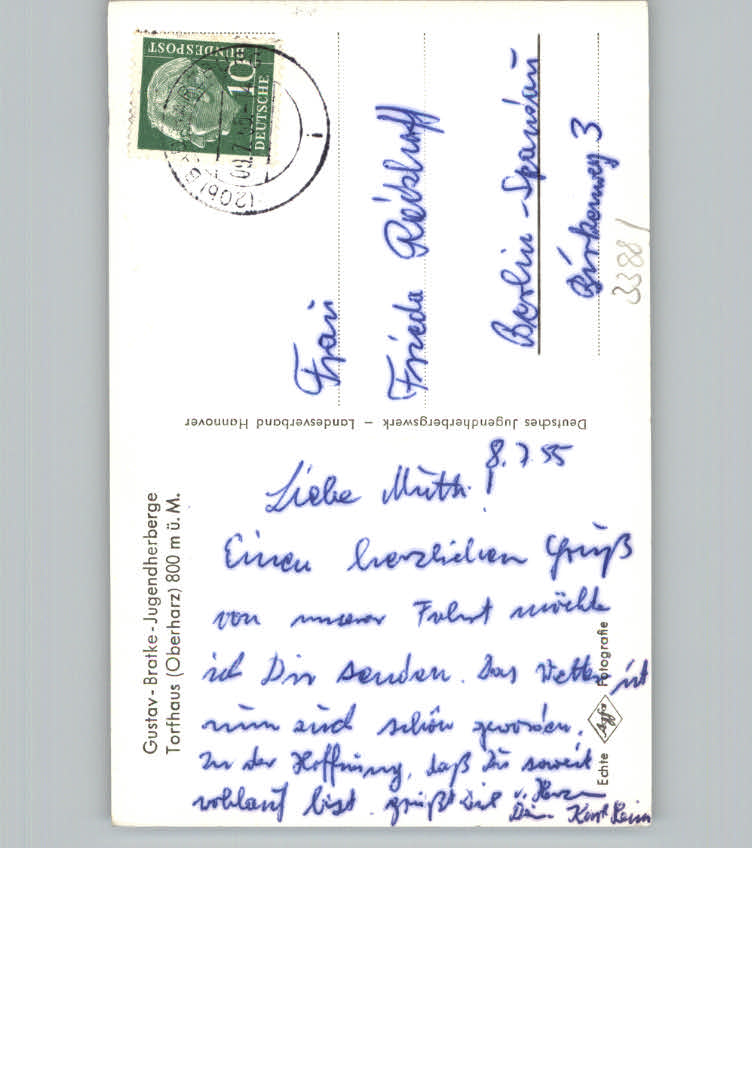 Gustav-Bratke-Jugendherberge
Torfhaus (Oberharz) 800 m ü. M.
8.7.55
Liebe Mutti!
Einen herzlichen Gruß
von unserer Fahrt möchte
ich Dir senden. Das Wetter ist
nun auch schön geworden.
In der Hoffnung, daß Du soweit
wohlauf bist, grüßt Dich v. Herzen
Dein Karl Heinz
Echte Agfa Fotografie
Deutsches Jugendherbergswerk – Landesverband Hannover
DEUTSCHE
BUNDESPOST
10
(20b)
Frau
Frieda
Berlin-Spandau
Birkenweg 3
3388/